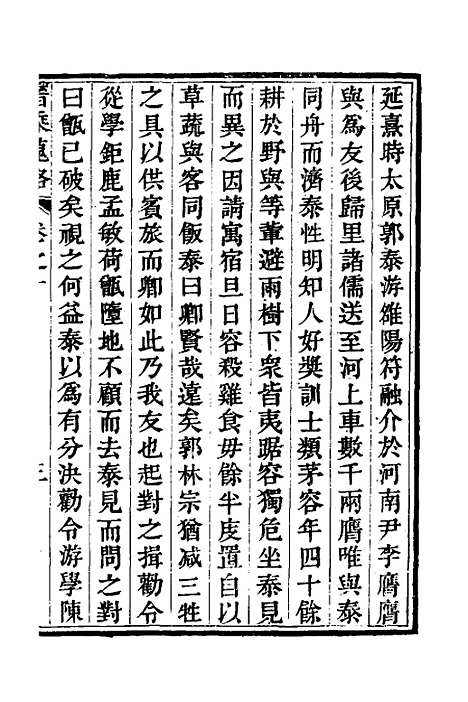 延熹時太原郭泰游雒陽符融介於河南尹李膺膺
與爲友後歸里諸儒送至河上車數千兩膺唯與泰
同舟而濟泰性明知人好獎訓士類茅容年四十餘
耕於野與等輩避雨樹下衆皆夷踞容獨危坐泰見
而異之因請寓宿旦日容殺雞食母餘半庋置自以
草蔬與客同飯泰曰卿賢哉遠矣郭林宗猶減三牲
之具以供賓旅而卿如此乃我友也起對之揖勸令
從學鉅鹿孟敏荷甑墮地不顧而去泰見而問之對
曰甑已破矣視之何益泰以爲有分決勸令游學陳
晉乘蒐略 卷之十 三